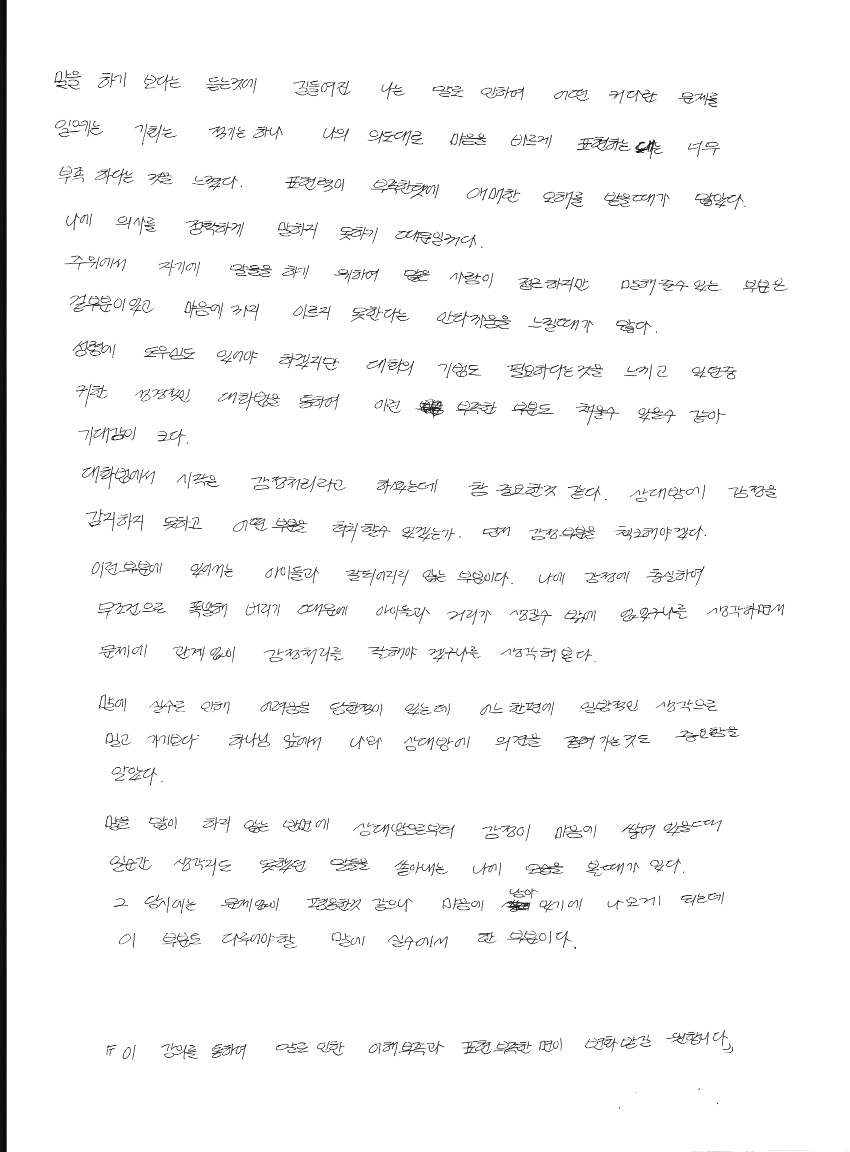 말을 하기 보다는 듣는것에 길들여진 나는 말로 인하여 어떤 커다란 문제를
일으키는 기회는 적기는 하나 나의 의도대로 마음을 바르게 표현하는 데는 너무
부족 하다는 것을 느꼈다. 표현력이 부족한탓에 애매한 오해를 받을때가 많았다.
나에 의사를 정확하게 말하지 못하기 때문일거다.
주위에서 자기에 말들을 하기 위하여 많은 사람이 접근하지만 말해줄수 있는 부분은
걸부분이 있고 마음에 까지 이르지 못한다는 안타까움을 느낄때가 많다.
성령에 도우심도 있어야 하겠지만 대화의 기법도 필요하다는것을 느끼고 있던중
귀한 성경적인 대화법을 통하여 이런 부족한 부분도 채울수 있을수 같아
기대감이 크다.
대화법에서 시작은 감정처리라고 하셨는데 참 중요한것 같다. 상대방에 감정을
감지하지 못하고 어떤 부분을 터치할수 있겠는가. 먼저 감정부분을 체크해야겠다.
이런부분에 있어서는 아이들과 갈데이리 없는 부분이다. 나에 감정에 충실하여
무조건으로 폭발해 버리기 때문에 아이들과 거리가 생길수 밖에 없었구나를 생각하면서
문제에 관계없이 감정처리를 잘해야 겠구나를 생각해 본다.
말에 실수로 인해 어려움을 당한적이 있는데 어느 한편에 일방적인 생각으로
밀고 가기보다 하나님 앞에서 나와 상대방에 의견을 줄여가는것도 중요함을
알았다.
말을 많이 하지 않는 반면에 상대방으로부터 감정이 마음에 쌓여 있을때
일순간 생각지도 못했던 말들을 쏟아내는 나에 모습을 볼때가 있다.
그 당시에는 문제없이 평온한것 같으나 마음에 남아 있기에 나오게 되는데
이 부분도 다루어야할 말에 실수에서 한 부분이다.
『이 강의를 통하여 말로 인한 이해부족과 표현부족한 면이 변화받길 원합니다』